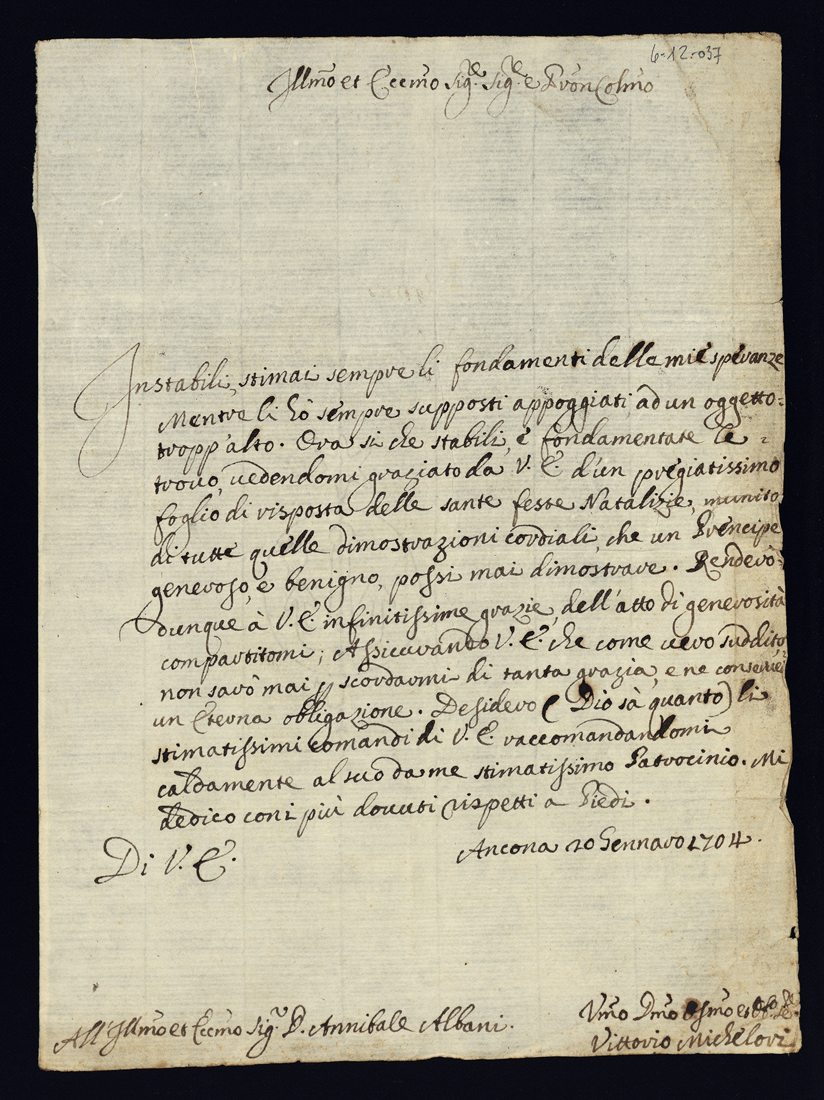 6-12-037
Illmo et Eccmo Sigre Sigre e Pron Colmo
Instabili, stimai sempre li fondamenti delle mie speranze
Mentre li hò sempre supposti appoggiati ad un oggetto
tropp'alto. Ora si che stabili, e fondamentate le
trovo, vedendomi graziato da V. E. d'un pregiatissimo
foglio di risposta delle sante feste Natalizie, munito
di tutte quelle dimostrazioni cordiali, che un Prencipe
generoso, e benigno, possi mai dimostrare. Renderò
dunque à V. E. infinitissime grazie, dell'atto di generosità
compartitomi; Assicurando V. E. che come vero suddito
non sarò mai p scordarmi di tanta grazia, e ne conserverò
un Eterna obligazione. Desidero (Dio sà quanto) li
stimatissimi comandi di V. E. raccomandandomi
caldamente al suo da me stimatissimo Patrocinio. Mi
dedico con i più dovuti rispetti a Piedi.
Di V. E.
Ancona 20 Gennaro 1704.
All'Illmo et Eccmo Sigr D. Annibale Albani.
Vmo Dmo et
Vittorio Michelori